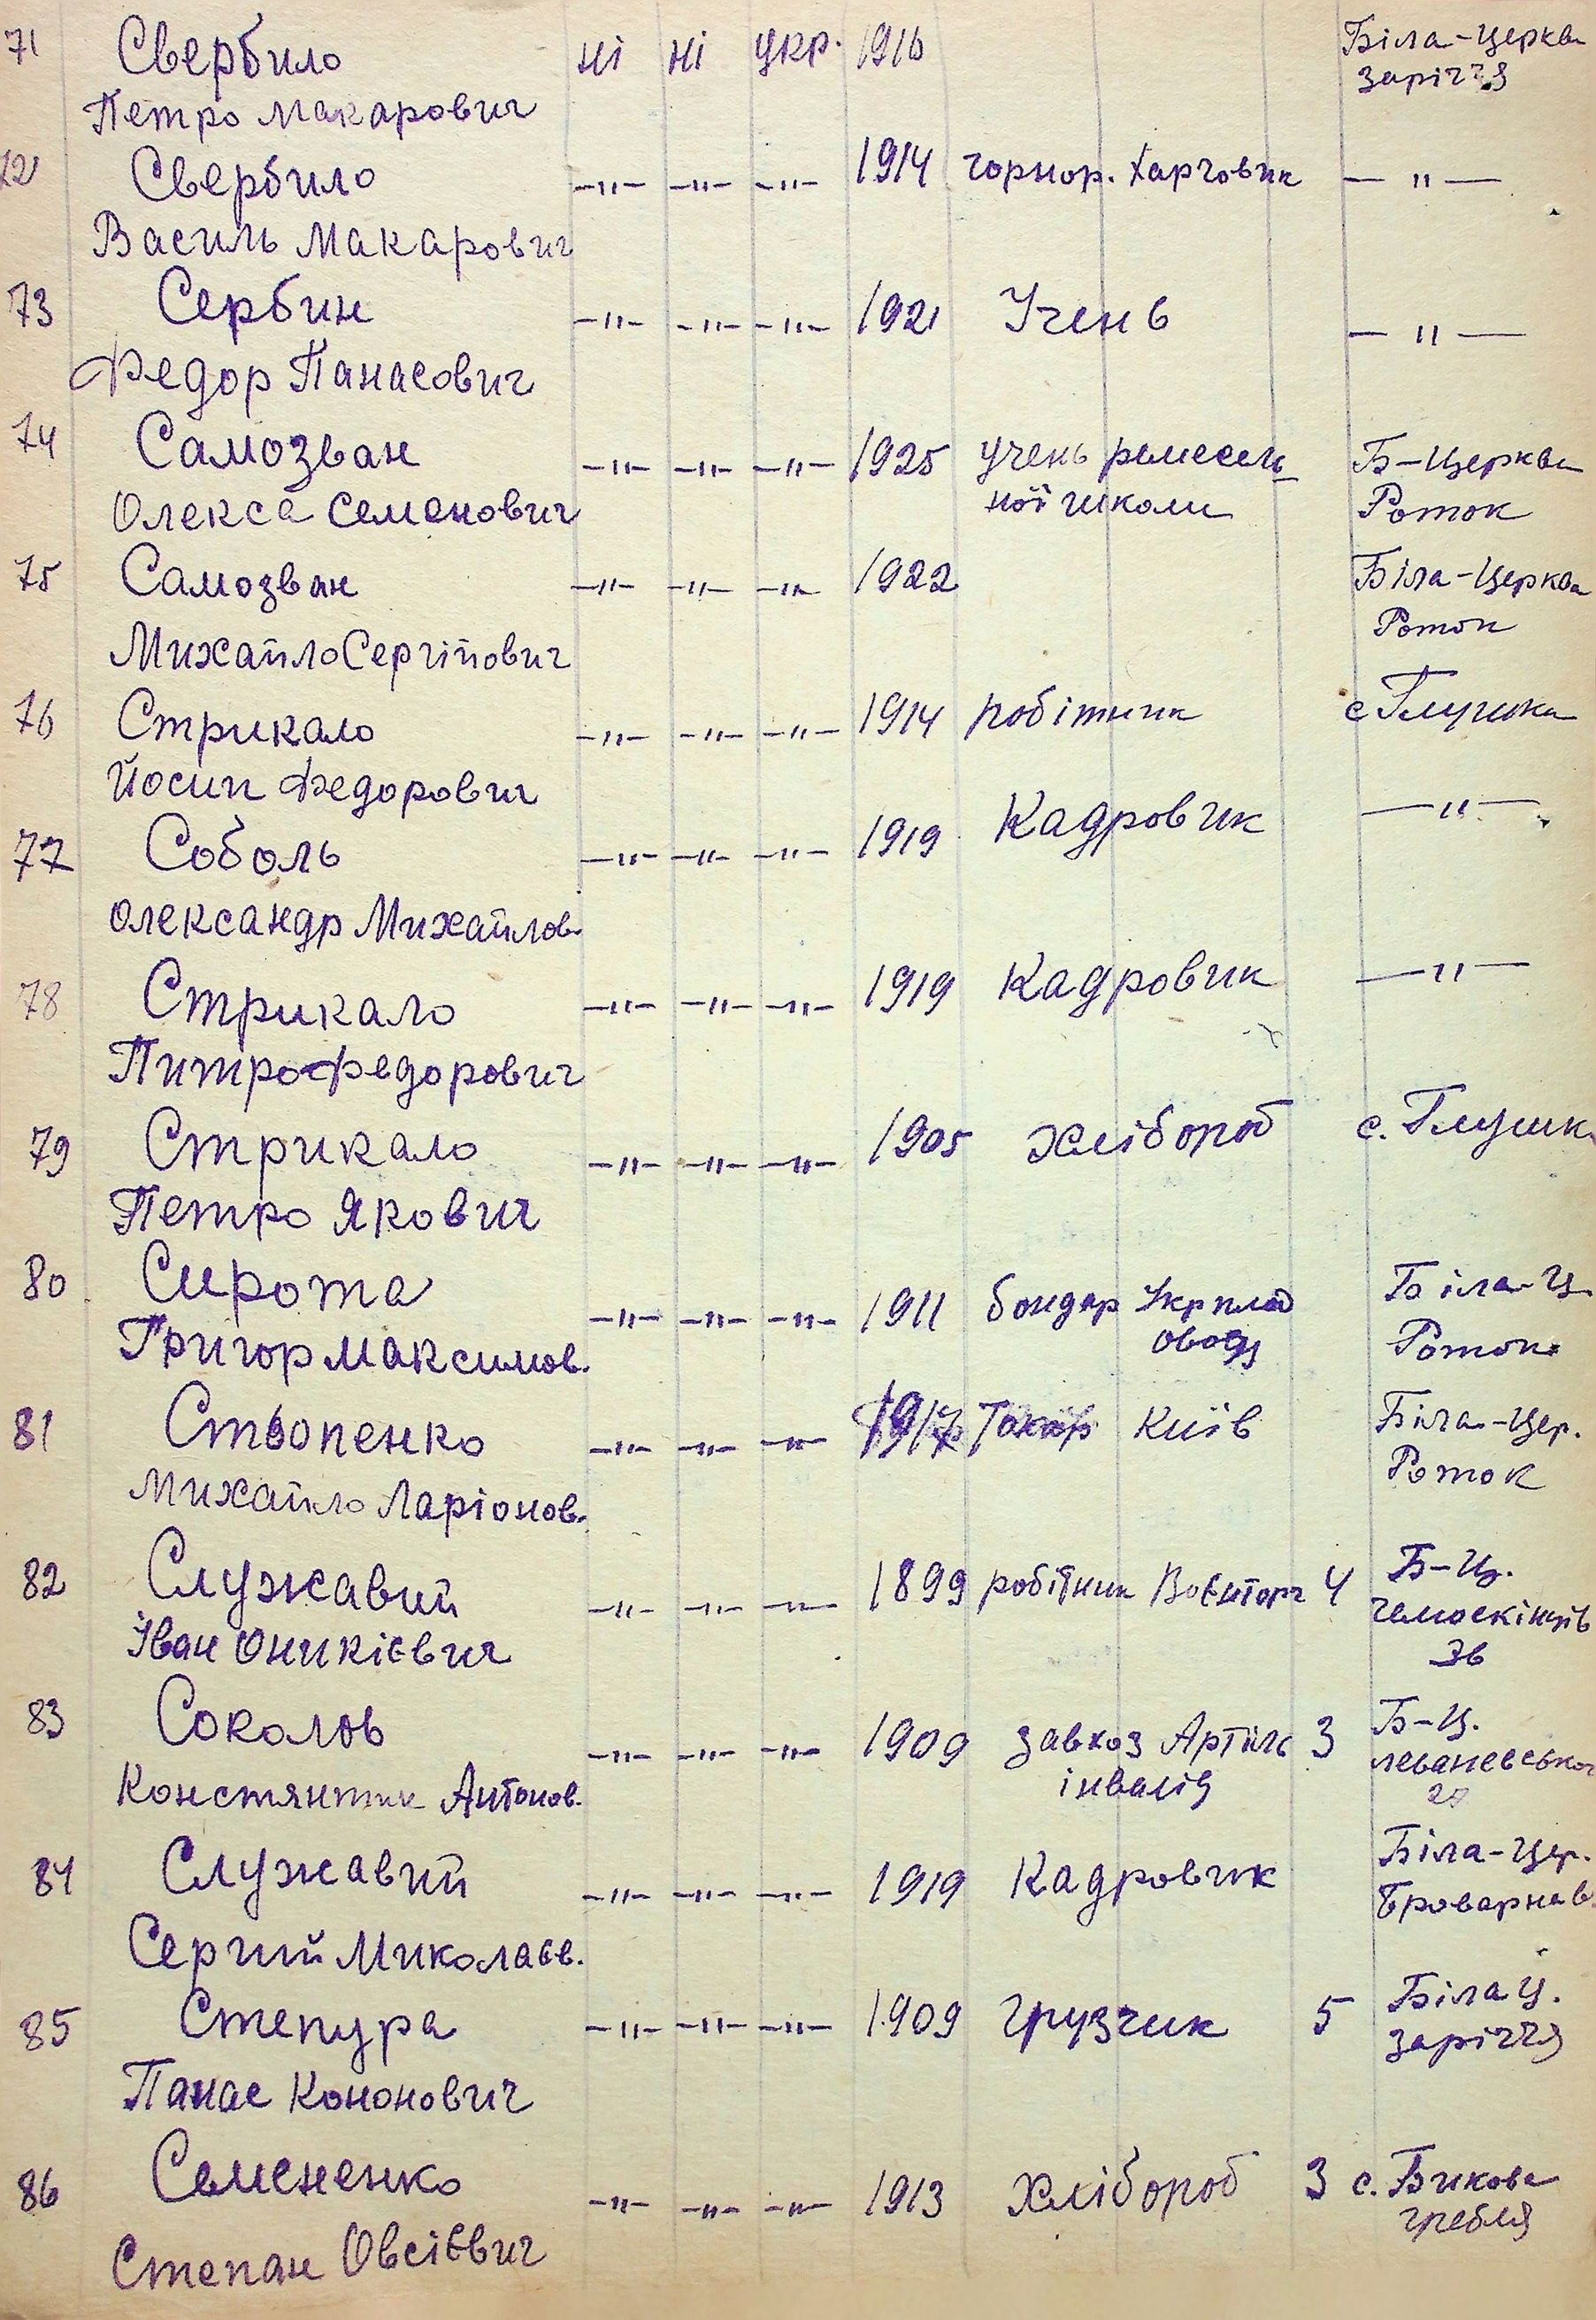 71 Свербило ні ні укр. 1916 Біла-Церква
Петро Макарович заріччя
72 Свербило —〃— —〃— —〃— 1914 чорнор. Харчовик —〃—
Василь Макарович
73 Сербин —〃— —〃— —〃— 1921 Учень —〃—
Федор Панасович
74 Самозван —〃— —〃— —〃— 1925 учень ремесель Б-Церква
Олекса Семенович ної школи Роток
75 Самозван —〃— —〃— —〃— 1922 Біла-Церква
Михайло Сергійович Роток
76 Стрикало —〃— —〃— —〃— 1914 робітник с Глушки
Йосип Федорович
77 Соболь —〃— —〃— —〃— 1919 Кадровик —〃—
Олександр Михайлов.
78 Стрикало —〃— —〃— —〃— 1919 Кадровик —〃—
Питро Федорович
79 Стрикало —〃— —〃— —〃— 1905 хлібороб с. Глушк
Петро Якович
80 Сирота —〃— —〃— —〃— 1911 бондар Укрплод Біла-Ц.
Григор Максимов. овощ Роток
81 Стьопенко —〃— —〃— —〃— 1917 Токар Київ Біла-Цер.
Михайло Ларіонов. Роток
82 Служавий —〃— —〃— —〃— 1899 робітник Воєнторг 4 Б-Ц.
Іван Оникієвич Чемоскінців
36
83 Соколов —〃— —〃— —〃— 1909 завхоз Артіль 3 Б-Ц.
Констянтин Антонов. інвалід леваневського
84 Служавий —〃— —〃— —〃— 1919 Кадровик Біла-Цер.
Сергий Миколаєв. Броварна
85 Степура —〃— —〃— —〃— 1909 грузчик 5 Біла Ц.
Панас Кононович заріччя
86 Семененко —〃— —〃— —〃— 1913 хлібороб 3 с. Бикова
Степан Овсієвич гребля